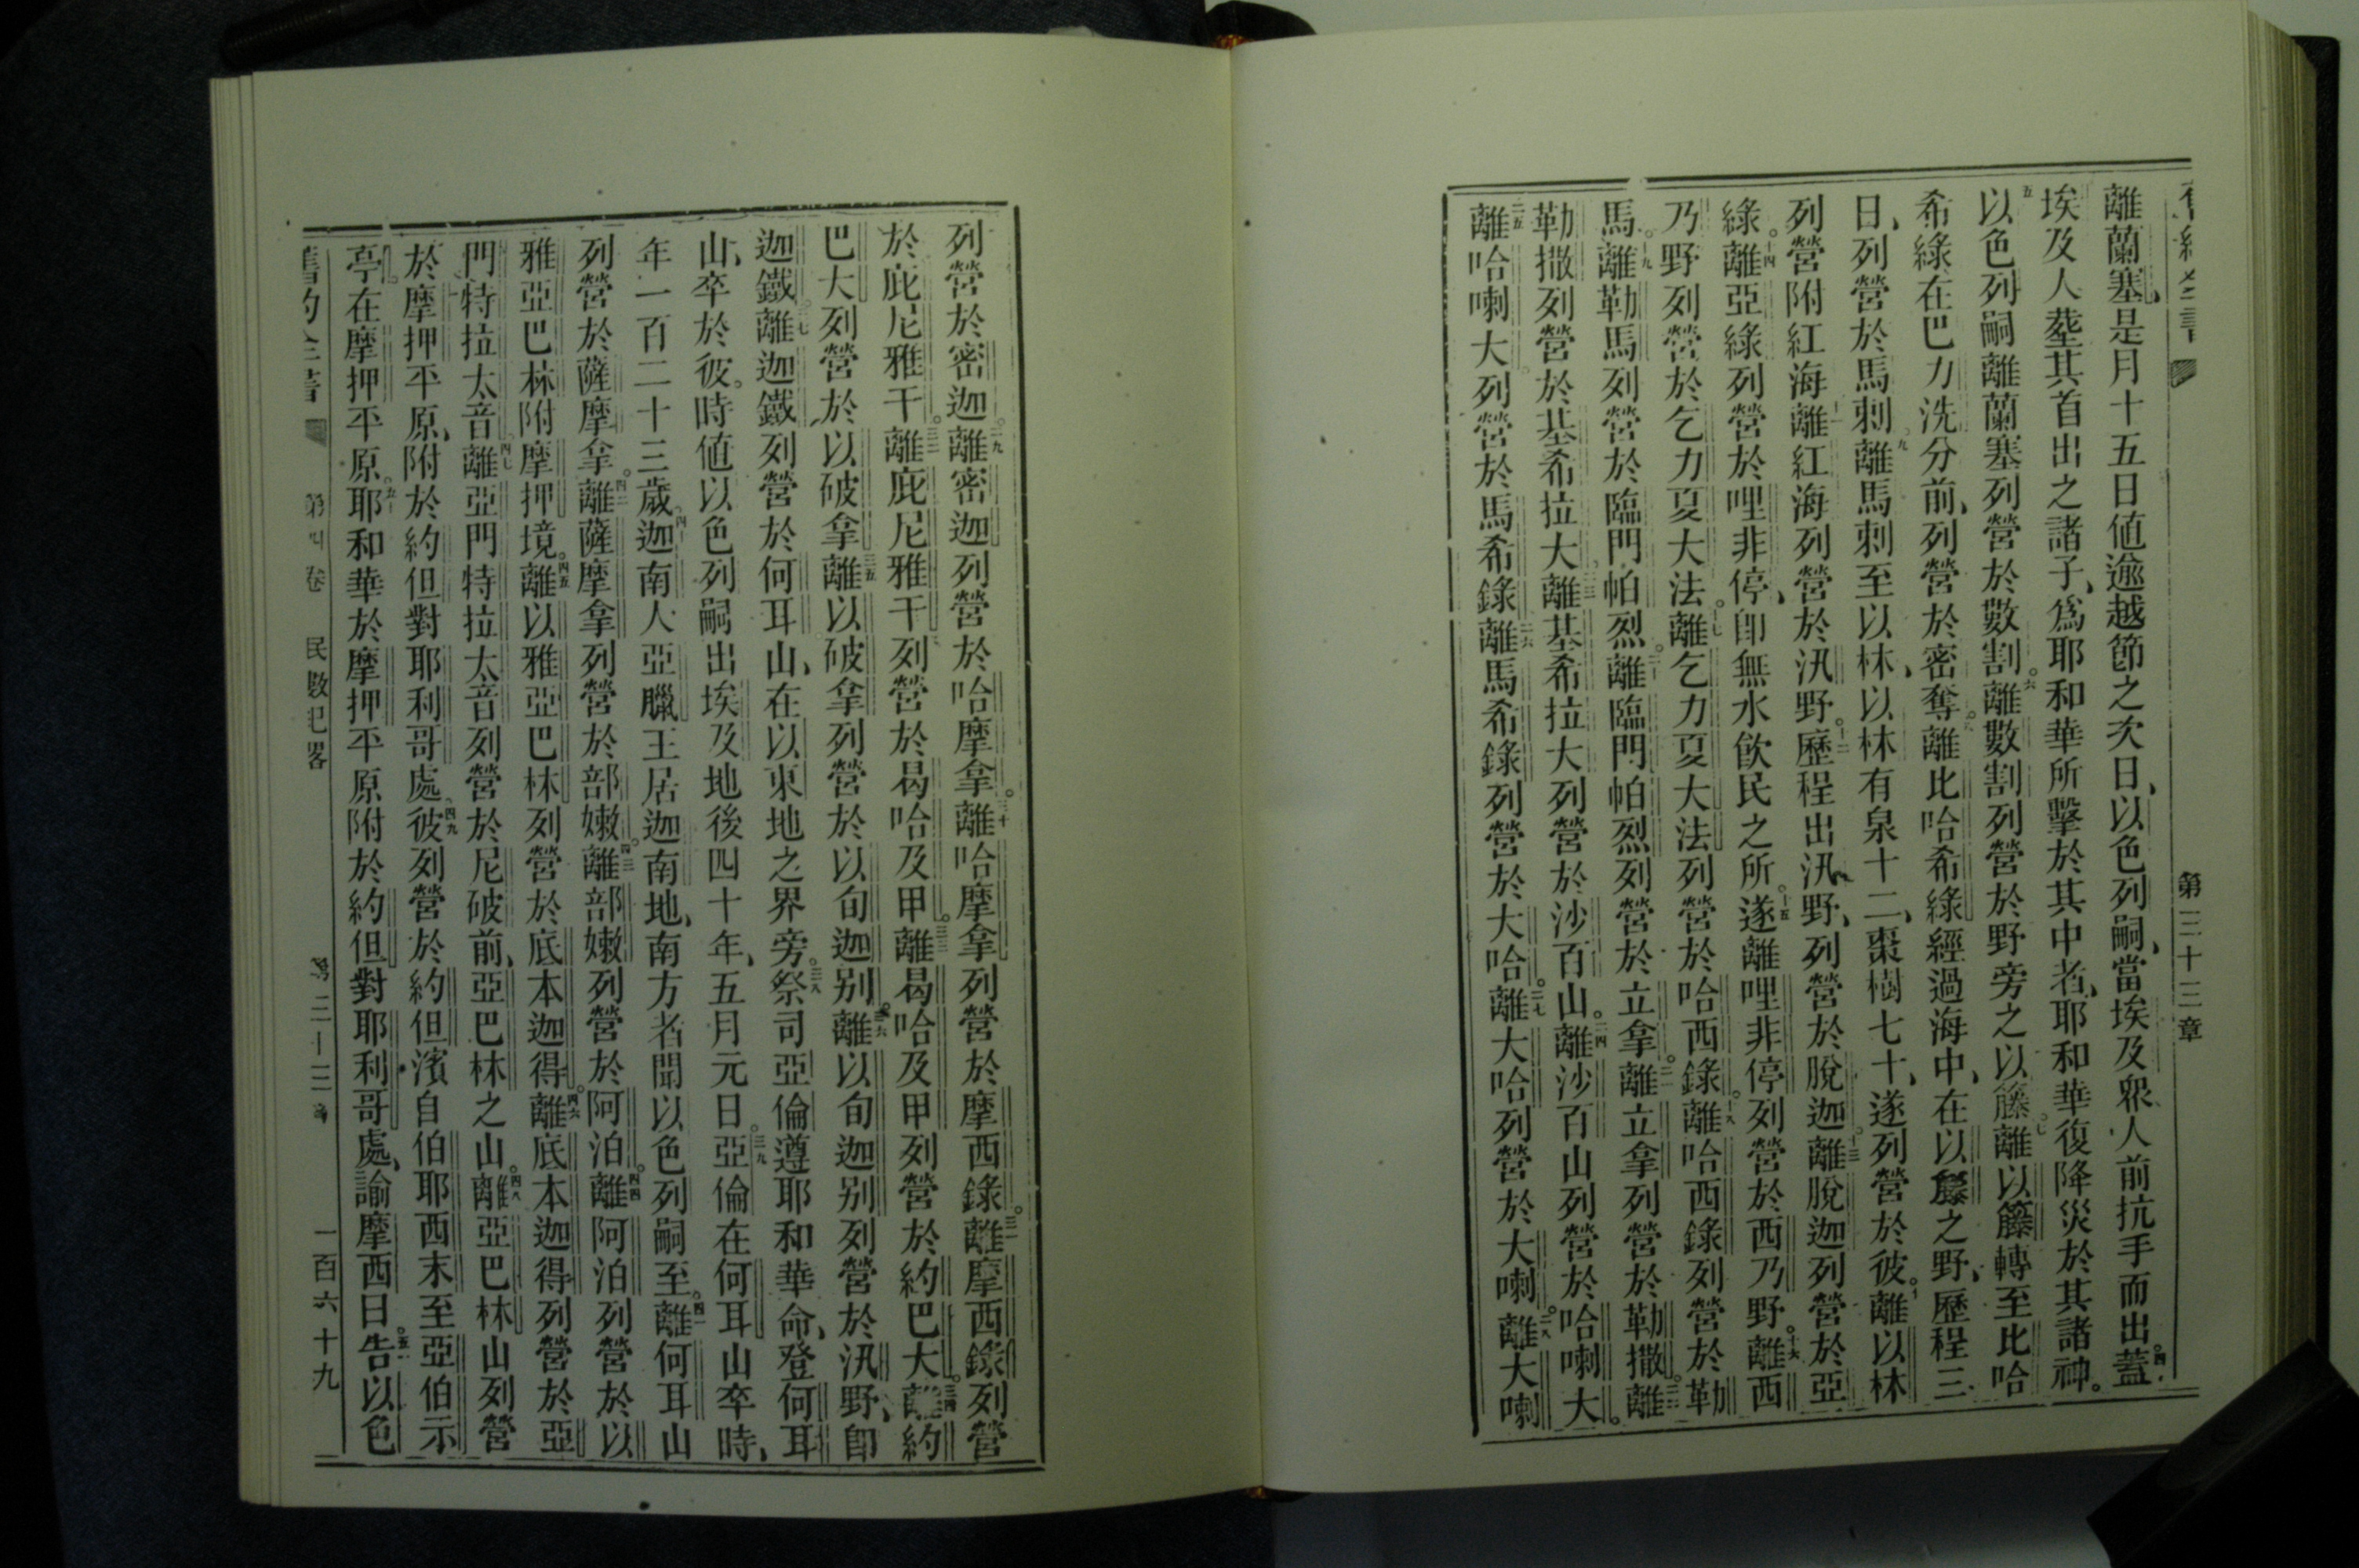 第三十三章
離蘭塞、是月十五日値逾越節之次日、以色列嗣、當埃及衆人前抗手而出。四蓋
埃及人葬其首出之諸子、爲耶和華所擊於其中者、耶和華復降災於其諸神。
五以色列嗣離蘭塞列營於數割。六離數割列營於野旁之以籐。七離以籐轉至比哈
希綠在巴力洗分前、列營於密奪。八離比哈希綠經過海中、在以籐之野、歷程三
日、列營於馬剌。九離馬剌至以林、以林有泉十二、棗樹七十、遂列營於彼。十離以林
列營附紅海。十一離紅海列營於汛野。十二歷程出汛野、列營於脫迦。十三離脫迦列營於亞
綠。十四離亞綠列營於哩非停、卽無水飲民之所。十五遂離哩非停列營於西乃野。十六離西
乃野列營於乞力夏大法。十七離乞力夏大法列營於哈西錄。十八離哈西錄列營於勒
馬。十九離勒馬列營於臨門帕烈。二十離臨門帕烈列營於立拿。二一離立拿列營於勒撒。二二離
勒撒列營於基希拉大。二三離基希拉大列營於沙百山。二四離沙百山列營於哈喇大。
二五離哈喇大列營於馬希錄。二六離馬希錄列營於大哈。二七離大哈列營於大喇。二八離大喇
列營於密迦。二九離密迦列營於哈摩拿。三十離哈摩拿列營於摩西錄。三一離摩西錄列營
於庇尼雅干。三二離庇尼雅干列營於曷哈及甲。三三離曷哈及甲列營於約巴大。三四離約
巴大列營於以破拿。三五離以破拿列營於以旬迦别。三六離以旬迦别列營於汛野、卽
迦鐵。三七離迦鐵列營於何耳山、在以東地之界旁。三八祭司亞倫遵耶和華命、登何耳
山、卒於彼。時値以色列嗣出埃及地後四十年、五月元日。三九亞倫在何耳山卒時、
年一百二十三歲。四十迦南人亞臘王居迦南地、南方者聞以色列嗣至。四一離何耳山
列營於薩摩拿。四二離薩摩拿列營於部嫩。四三離部嫩列營於阿泊。四四離阿泊列營於以
雅亞巴林附摩押境。四五離以雅亞巴林列營於底本迦得。四六離底本迦得列營於亞
門特拉太音。四七離亞門特拉太音列營於尼破前、亞巴林之山。四八離亞巴林山列營
於摩押平原、附於約但對耶利哥處。四九彼列營於約但濱自伯耶西末至亞伯示
亭。在摩押平原。五十耶和華於摩押平原附於約但對耶利哥處、諭摩西曰。五一告以色
舊約全書 第四卷 民數紀畧 第三十三章 一百六十九